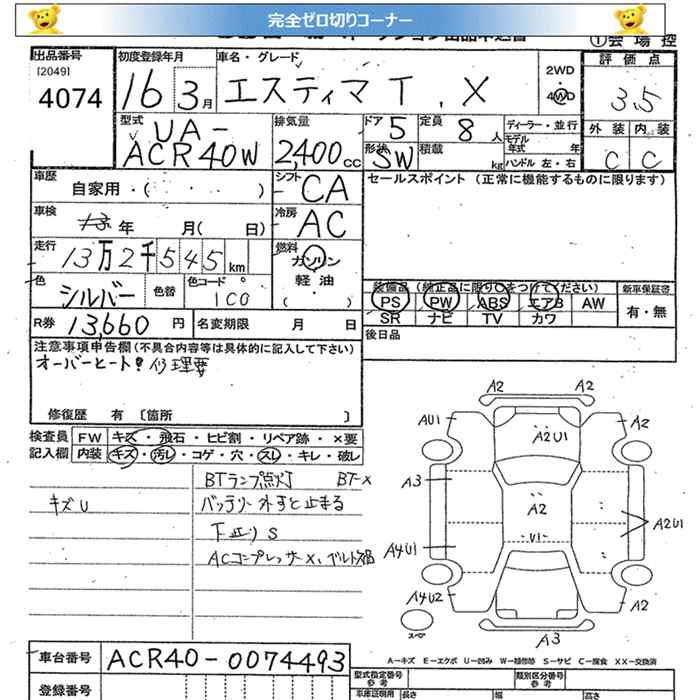 完全ゼロ切りコーナー
①会場控
出品番号 初度登録年月 車名・グレード 2WD 評価点
[2049] 4074 16 3月 エスティマT.X 4WD 3.5
型式 UA- ACR40W 排気量 2,400cc ドア 5 定員 8人 ディーラー・並行 外装 内装
形状 SW 積載 kg モデル年式 年 C C
ハンドル 左・右
車歴 自家用・( ) シフト CA セールスポイント (正常に機能するものに限ります)
車検 年 月( 日) 冷房 AC
走行 13万2千545km 燃料 ガソリン 軽油 ( ・ )
色 シルバー 色替 色コード 1C0 装備品 (純正品に限り○をつけてください) 新車保証書
PS PW ABS エアB AW 有・無
R券 13,660円 名変期限 月 日 SR ナビ TV カワ
後日品
注意事項申告欄 (不具合内容等は具体的に記入して下さい)
オーバーヒート! 修理要
修復歴 有 [箇所 ]
検査員 FW キズ・飛石・ヒビ割・リペア跡・×要
記入欄 内装 キズ・汚レ・コゲ・穴・スレ・キレ・破レ
BTランプ点灯 BT-X
キズU バッテリー外すと止まる
下廻りS
ACコンプレッサーX、ベルト
A2 A2
AU1 A2U1 A2
A3 A2 A2U1
U1
A4U1
A4U2 A2
スペア A3
A-キズ E-エクボ U-凹み W-補修跡 S-サビ C-腐食 XX-交換済
車台番号 ACR40-0074493 型式指定番号 参考 類別区分番号 参考
登録番号 車庫証明用 長さ 幅 高さ